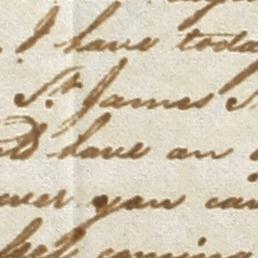 . I have toda
St. James S
have an
ever you can
coming